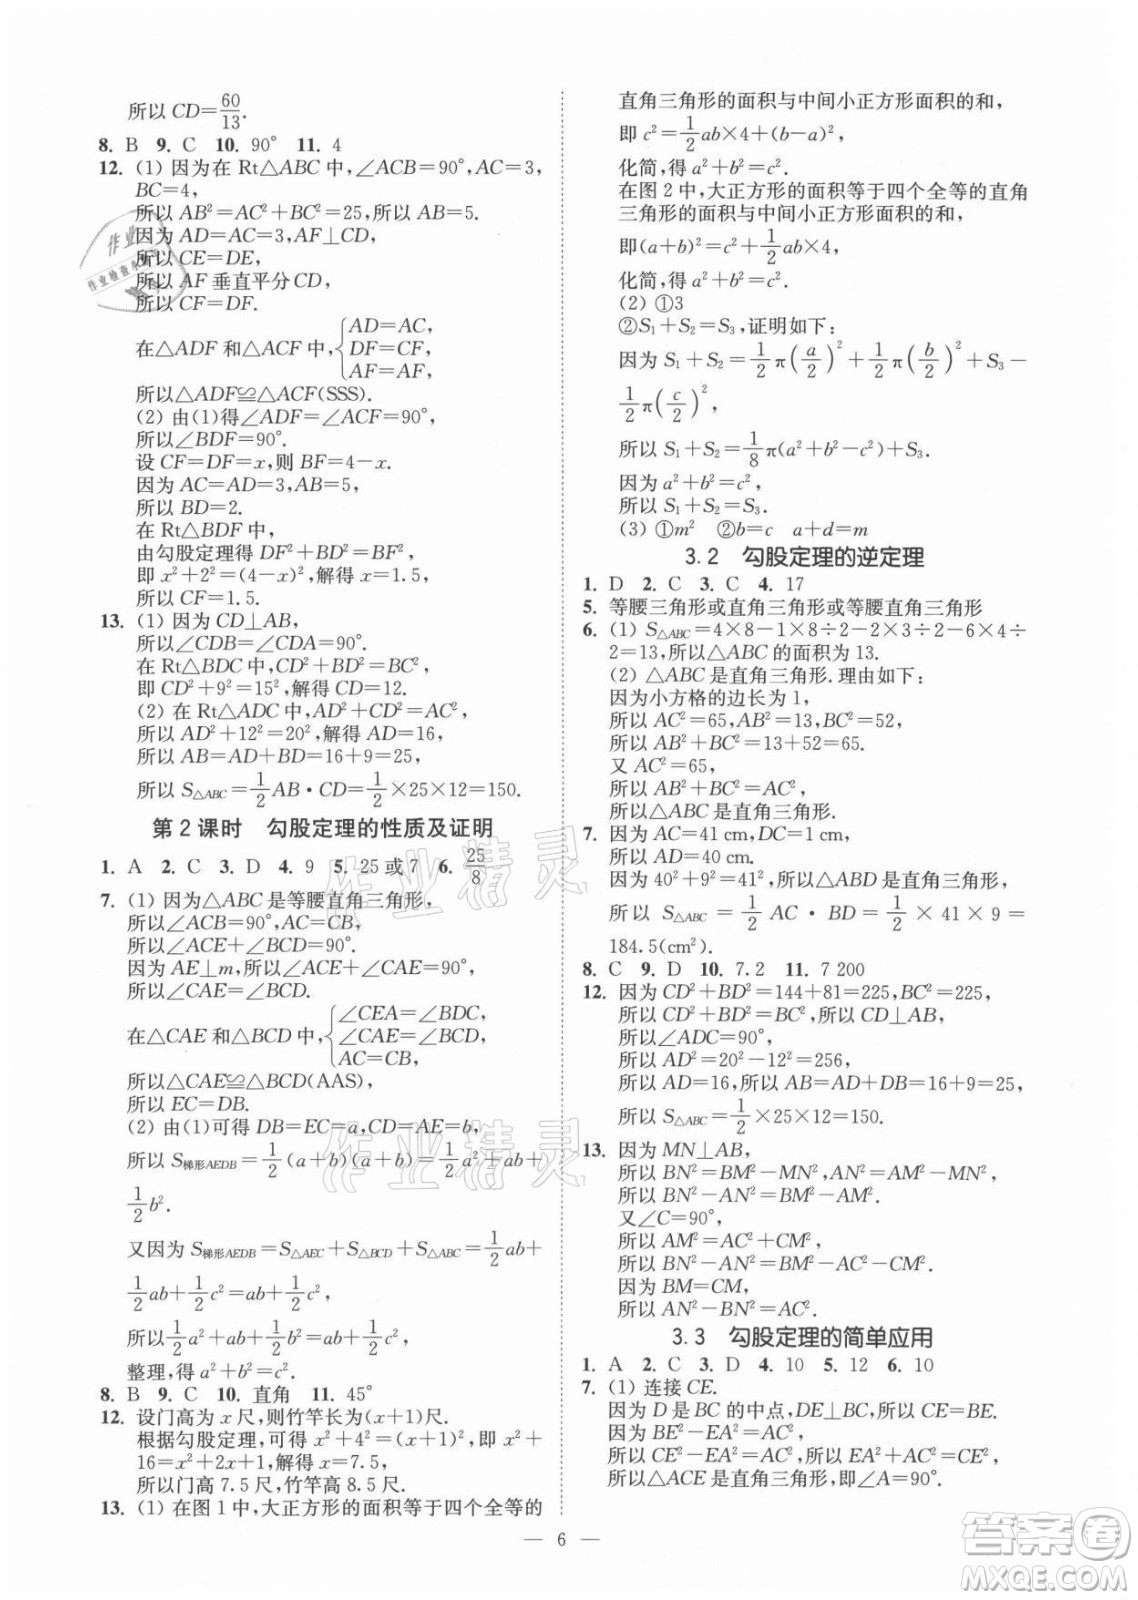 所以 CD=60/13.
8. B 9. C 10. 90° 11. 4
12. (1) 因为在 Rt△ABC 中,∠ACB=90°,AC=3,
BC=4,
所以 AB²=AC²+BC²=25,所以 AB=5.
因为 AD=AC=3,AF⊥CD,
所以 CE=DE.
所以 AF 垂直平分 CD,
所以 CF=DF.
在△ADF 和△ACF 中,{AD=AC,
DF=CF,
AF=AF,
所以△ADF≌△ACF(SSS).
(2) 由(1)得∠ADF=∠ACF=90°,
所以∠BDF=90°.
设 CF=DF=x,则 BF=4-x.
因为 AC=AD=3,AB=5,
所以 BD=2.
在 Rt△BDF 中,
由勾股定理得 DF²+BD²=BF²,
即 x²+2²=(4-x)²,解得 x=1.5,
所以 CF=1.5.
13. (1) 因为 CD⊥AB,
所以∠CDB=∠CDA=90°.
在 Rt△BDC 中,CD²+BD²=BC²,
即 CD²+9²=15²,解得 CD=12.
(2) 在 Rt△ADC 中,AD²+CD²=AC²,
所以 AD²+12²=20²,解得 AD=16,
所以 AB=AD+BD=16+9=25,
所以 S△ABC=1/2 AB·CD=1/2×25×12=150.
第 2 课时 勾股定理的性质及证明
1. A 2. C 3. D 4. 9 5. 25 或 7 6. 25/8
7. (1) 因为△ABC 是等腰直角三角形,
所以∠ACB=90°,AC=CB,
所以∠ACE+∠BCD=90°.
因为 AE⊥m,所以∠ACE+∠CAE=90°,
所以∠CAE=∠BCD.
在△CAE 和△BCD 中,{∠CEA=∠BDC,
∠CAE=∠BCD,
AC=CB,
所以△CAE≌△BCD(AAS),
所以 EC=DB.
(2) 由(1)可得 DB=EC=a,CD=AE=b,
所以 S梯形AEDB=1/2(a+b)(a+b)=1/2a²+ab+
1/2b².
又因为 S梯形AEDB=S△AEC+S△BCD+S△ABC=1/2ab+
1/2ab+1/2c²=ab+1/2c²,
所以1/2a²+ab+1/2b²=ab+1/2c²,
整理,得 a²+b²=c².
8. B 9. C 10. 直角 11. 45°
12. 设门高为 x 尺,则竹竿长为(x+1)尺.
根据勾股定理,可得 x²+4²=(x+1)²,即 x²+
16=x²+2x+1,解得 x=7.5,
所以门高 7.5 尺,竹竿高 8.5 尺.
13. (1) 在图 1 中,大正方形的面积等于四个全等的
直角三角形的面积与中间小正方形面积的和,
即 c²=1/2ab×4+(b-a)²,
化简,得 a²+b²=c².
在图 2 中,大正方形的面积等于四个全等的直角
三角形的面积与中间小正方形面积的和,
即(a+b)²=c²+1/2ab×4,
化简,得 a²+b²=c².
(2) ①3
②S₁+S₂=S₃,证明如下:
因为 S₁+S₂=1/2π(a/2)²+1/2π(b/2)²+S₃-
1/2π(c/2)²,
所以 S₁+S₂=1/8π(a²+b²-c²)+S₃.
因为 a²+b²=c²,
所以 S₁+S₂=S₃.
(3) ①m² ②b=c a+d=m
3.2 勾股定理的逆定理
1. D 2. C 3. C 4. 17
5. 等腰三角形或直角三角形或等腰直角三角形
6. (1) S△ABC=4×8-1×8÷2-2×3÷2-6×4÷
2=13,所以△ABC 的面积为 13.
(2) △ABC 是直角三角形.理由如下:
因为小方格的边长为 1,
所以 AC²=65,AB²=13,BC²=52,
所以 AB²+BC²=13+52=65.
又 AC²=65,
所以 AB²+BC²=AC²,
所以△ABC 是直角三角形.
7. 因为 AC=41 cm,DC=1 cm,
所以 AD=40 cm.
因为 40²+9²=41²,所以△ABD 是直角三角形,
所以 S△ABC=1/2 AC·BD=1/2×41×9=
184.5(cm²).
8. C 9. D 10. 7.2 11. 7 200
12. 因为 CD²+BD²=144+81=225,BC²=225,
所以 CD²+BD²=BC²,所以 CD⊥AB,
所以∠ADC=90°,
所以 AD²=20²-12²=256,
所以 AD=16,所以 AB=AD+DB=16+9=25,
所以 S△ABC=1/2×25×12=150.
13. 因为 MN⊥AB,
所以 BN²=BM²-MN²,AN²=AM²-MN²,
所以 BN²-AN²=BM²-AM².
又∠C=90°,
所以 AM²=AC²+CM²,
所以 BN²-AN²=BM²-AC²-CM².
因为 BM=CM,
所以 AN²-BN²=AC².
3.3 勾股定理的简单应用
1. A 2. C 3. D 4. 10 5. 12 6. 10
7. (1) 连接 CE.
因为 D 是 BC 的中点,DE⊥BC,所以 CE=BE.
因为 BE²-EA²=AC²,
所以 CE²-EA²=AC²,所以 EA²+AC²=CE²,
所以△ACE 是直角三角形,即∠A=90°.
— 6 —
作业
作业检查
作业精灵
作业精灵
答案卷
MXQE.COM